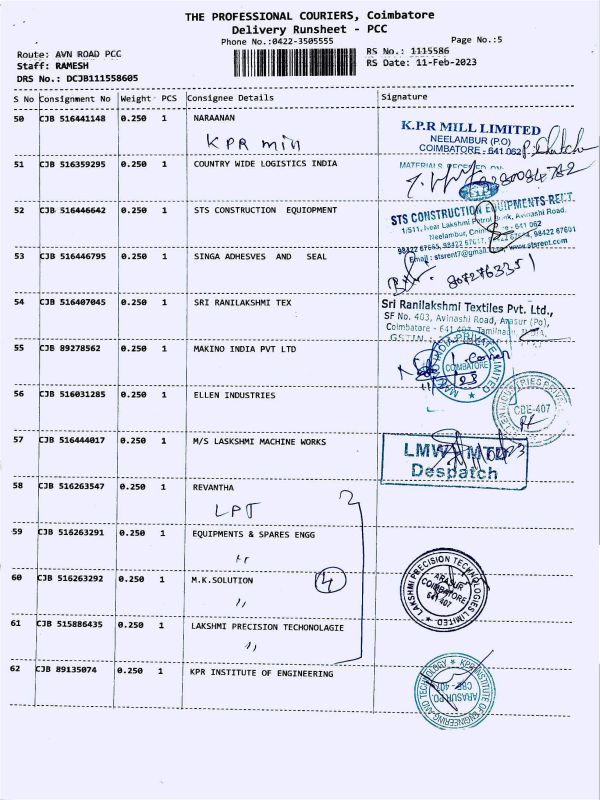 THE PROFESSIONAL COURIERS, Coimbatore
Delivery Runsheet - PCC
Phone No.:0422-3505555
Page No.:5
Route: AVN ROAD PCC
RS No.: 1115586
Staff: RAMESH
RS Date: 11-Feb-2023
DRS No.: DCJB111558605
S No Consignment No Weight PCS Consignee Details Signature
50 CJB 516441148 0.250 1 NARAANAN
KPR min
K.P.R MILL LIMITED
NEELAMBUR (P.O)
COIMBATORE - 641 062
51 CJB 516359295 0.250 1 COUNTRY WIDE LOGISTICS INDIA
MATERIALS RECEIVED ON
52 CJB 516446642 0.250 1 STS CONSTRUCTION EQUIOPMENT
STS CONSTRUCTION EQUIPMENTS RENT
1/511, Near Lakshmi Petrol Bunk, Avinashi Road,
Neelambur, - 641 062
98422 67601
Email : stsrent7@gmail www.stsrent.com
53 CJB 516446795 0.250 1 SINGA ADHESVES AND SEAL
54 CJB 516407045 0.250 1 SRI RANILAKSHMI TEX
Sri Ranilakshmi Textiles Pvt. Ltd.,
SF No. 403, Avinashi Road, Arasur (Po),
Coimbatore - 641 407, Tamilnadu, INDIA.
GSTIN :
55 CJB 89278562 0.250 1 MAKINO INDIA PVT LTD
MAKINO INDIA PRIVATE LIMITED
COIMBATORE
56 CJB 516031285 0.250 1 ELLEN INDUSTRIES
CBE-407
57 CJB 516444017 0.250 1 M/S LASKSHMI MACHINE WORKS
LMW MTD
Despatch
58 CJB 516263547 0.250 1 REVANTHA
LPT
59 CJB 516263291 0.250 1 EQUIPMENTS & SPARES ENGG
"
60 CJB 516263292 0.250 1 M.K.SOLUTION
"
4
LAKSHMI PRECISION TECHNOLOGIES LIMITED
ARASUR
COIMBATORE
641 407
61 CJB 515886435 0.250 1 LAKSHMI PRECISION TECHONOLAGIE
"
62 CJB 89135074 0.250 1 KPR INSTITUTE OF ENGINEERING
KPR INSTITUTE OF ENGINEERING AND TECHNOLOGY
ARASUR PO.
CBE-407